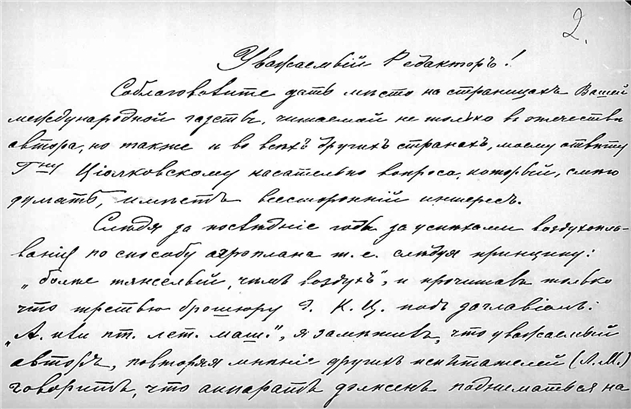 2.
Уважаемый Редакторъ!
Соблаговолите дать мѣсто на страницахъ Вашей
международной газеты, читаемой не только въ отечествѣ
автора, но также и во всѣхъ другихъ странахъ, моему отвѣту
Г-ну Ціолковскому касательно вопроса, который, смѣю
думать, имѣетъ всесторонній интересъ.
Слѣдя за послѣдніе годы за успѣхами воздухопла-
ванія по способу аэроплана т. е. слѣдуя принципу:
„болѣе тяжелый, чѣмъ воздухъ", и прочитавъ только
что третью брошюру Э. К. Ц. подъ заглавіемъ:
„А. или пт. лет. маш.", я замѣтилъ, что уважаемый
авторъ, повторяя мнѣніе другихъ испытателей (Л. М.)
говоритъ, что аппаратъ долженъ подниматься на